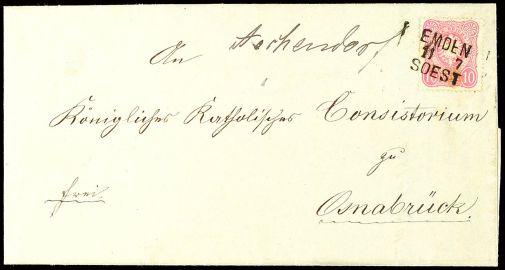 Aschendorf
EMDEN
11 7
SOEST
10 10
An
Königliches Katholisches Consistorium
zu
frei.
Osnabrück.